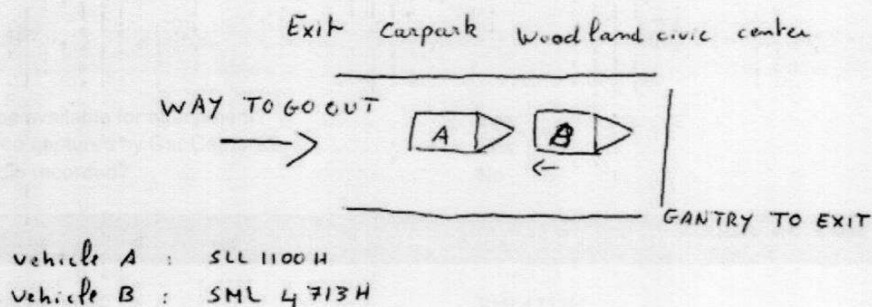 Exit Carpark Woodland civic center
WAY TO GO OUT
A
B
GANTRY TO EXIT
vehicle A : SLL 1100 H
vehicle B : SML 4713 H